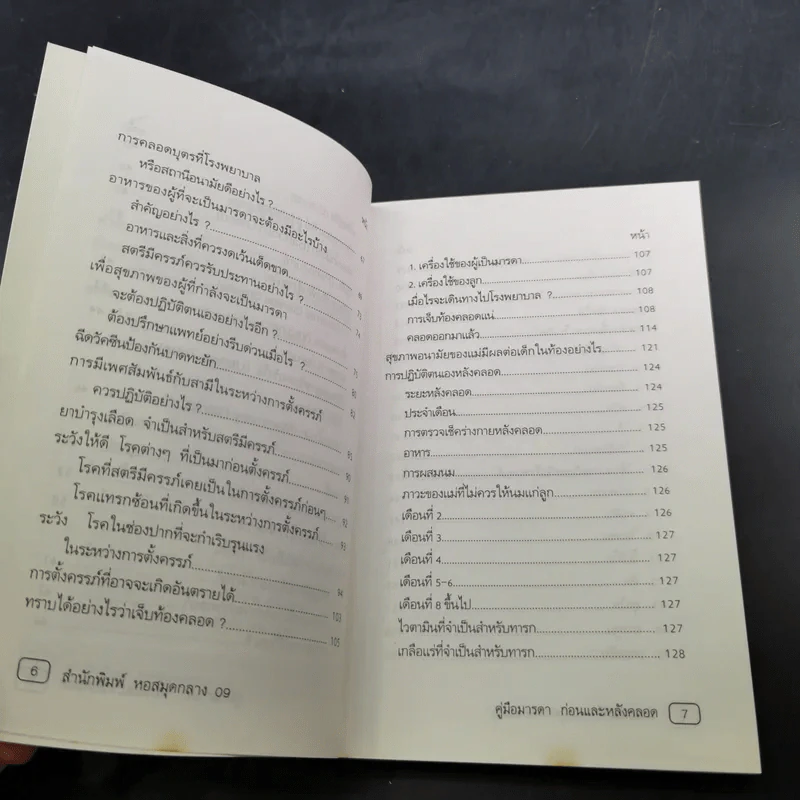 การคลอดบุตรที่โรงพยาบาล
หรือสถานีอนามัยดีอย่างไร ?
อาหารของผู้ที่จะเป็นมารดาจะต้องมีอะไรบ้าง
สำคัญอย่างไร ?
อาหารและสิ่งที่ควรงดเว้นเด็ดขาด
สตรีมีครรภ์ควรรับประทานอย่างไร ?
เพื่อสุขภาพของผู้ที่กำลังจะเป็นมารดา
จะต้องปฏิบัติตนเองอย่างไรอีก ?
ต้องปรึกษาแพทย์อย่างรีบด่วนเมื่อไร ?
ฉีดวัคซีนป้องกันบาดทะยัก
การมีเพศสัมพันธ์กับสามีในระหว่างการตั้งครรภ์
ควรปฏิบัติอย่างไร ?
ยาบำรุงเลือด จำเป็นสำหรับสตรีมีครรภ์
ระวังให้ดี โรคต่างๆ ที่เป็นมาก่อนตั้งครรภ์ 90
โรคที่สตรีมีครรภ์เคยเป็นในการตั้งครรภ์ก่อนๆ 92
โรคแทรกซ้อนที่เกิดขึ้นในระหว่างการตั้งครรภ์ 93
ระวัง โรคในช่องปากที่จะกำเริบรุนแรง
ในระหว่างการตั้งครรภ์ 94
การตั้งครรภ์ที่อาจจะเกิดอันตรายได้ 103
ทราบได้อย่างไรว่าเจ็บท้องคลอด ? 105
6 สำนักพิมพ์ หอสมุดกลาง 09
หน้า
1. เครื่องใช้ของผู้เป็นมารดา 107
2. เครื่องใช้ของลูก 107
เมื่อไรจะเดินทางไปโรงพยาบาล ? 108
การเจ็บท้องคลอดแน่ 108
คลอดออกมาแล้ว 114
สุขภาพอนามัยของแม่มีผลต่อเด็กในท้องอย่างไร 121
การปฏิบัติตนเองหลังคลอด 124
ระยะหลังคลอด 124
ประจำเดือน 125
การตรวจเช็คร่างกายหลังคลอด 125
อาหาร 125
การผสมนม 126
ภาวะของแม่ที่ไม่ควรให้นมแก่ลูก 126
เดือนที่ 2 126
เดือนที่ 3 127
เดือนที่ 4 127
เดือนที่ 5-6 127
เดือนที่ 8 ขึ้นไป 127
ไวตามินที่จำเป็นสำหรับทารก 127
เกลือแร่ที่จำเป็นสำหรับทารก 128
คู่มือมารดา ก่อนและหลังคลอด 7